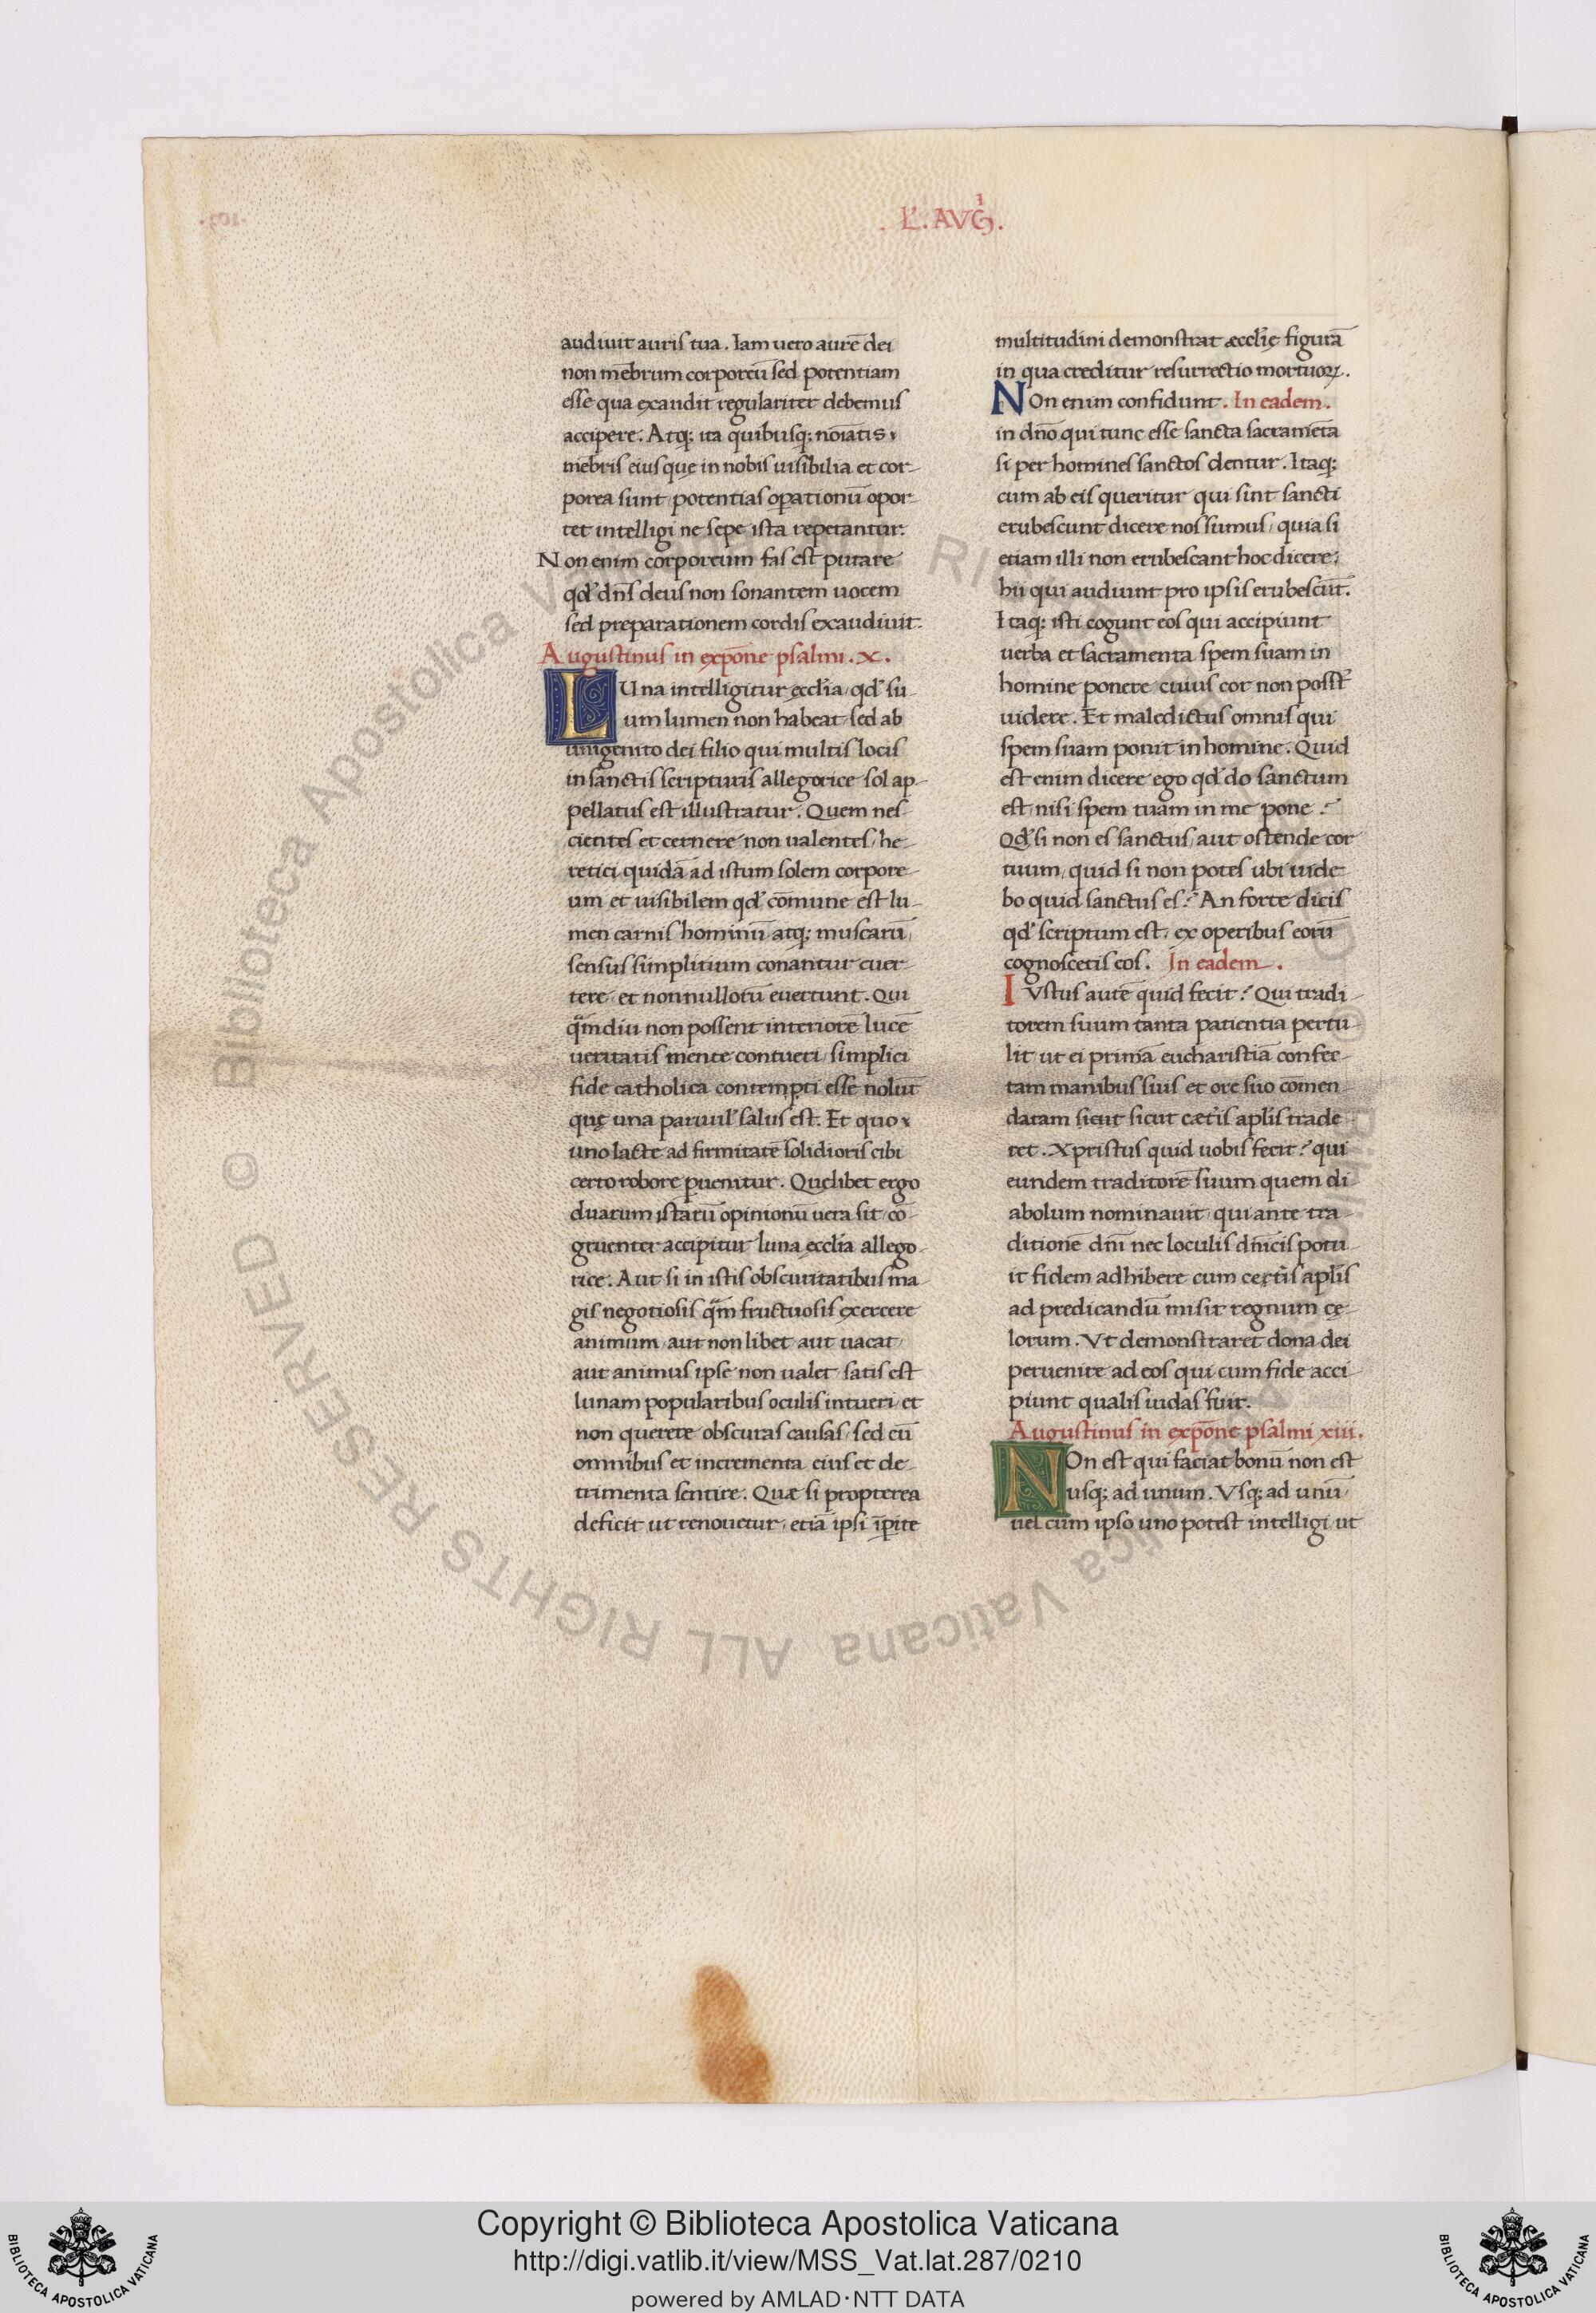 .L'. AVGⁱ.
audiuit auris tua. Iam uero aurē dei
non mēbrum corporeū sed potentiam
esse qua exaudit regulariter debemus
accipere. Atq; ita quibusq; noīatis
mēbris eius quę in nobis uisibilia et cor-
porea sunt potentias opationū opor-
tet intelligi ne sepe ista repetantur.
Non enim corporeum fas est putare
qd' dn̄s deus non sonantem uocem
sed preparationem cordis exaudiuit.
Augustinus in expōne psalmi .x.
LUna intelligitur ęcclīa qd' su-
um lumen non habeat sed ab
unigenito dei filio qui multis locis
in sanctis scripturis allegorice sol ap-
pellatus est illustratur. Quem nes-
cientes et cernere non ualentes he-
retici quidā ad istum solem corpore-
um et uisibilem qd' cōmune est lu-
men carnis hominū atq; muscarū
sensus simplitium conantur euer-
tere et nonnullorū euertunt. Qui
q̄mdiu non possent interiorē lucē
ueritatis mente contueri simplici
fide catholica contempti esse nolūt
quę una paruul' salus est. Et quo
uno lacte ad firmitatē solidioris cibi
certo robore puenitur. Quęlibet ergo
duarum istarū opinionū uera sit cō-
gruenter accipitur luna ęcclīa allego-
rice. Aut si in istis obscuritatibus ma-
gis negotiosis q̄m fructuosis exercere
animum aut non libet aut uacat
aut animus ipse non ualet satis est
lunam popularibus oculis intueri et
non querere obscuras causas sed cū
omnibus et incrementa eius et de-
trimenta sentire. Quæ si propterea
deficit ut renouetur etiā ipsi īpite
multitudini demonstrat æccl'ię figurā
in qua creditur resurrectio mortuoꝝ.
NOn enim confidunt. In eadem.
in dn̄o qui tunc esse sancta sacramēta
si per homines sanctos dentur. Itaq;
cum ab eis queritur qui sint sancti
erubescunt dicere nos sumus quia si
etiam illi non erubescant hoc dicere;
hii qui audiunt pro ipsis erubescūt.
Itaq; isti cogunt eos qui accipiunt
uerba et sacramenta spem suam in
homine ponere cuius cor non poss̄t
uidere. Et maledictus omnis qui
spem suam ponit in homine. Quid
est enim dicere ego qd' do sanctum
est nisi spem tuam in me pone?
Qd' si non es sanctus aut ostende cor
tuum, quid si non potes ubi uide-
bo quid sanctus es? An forte dicis
qd' scriptum est, ex operibus eorū
cognoscetis eos. In eadem.
IVstus autē quid fecit? Qui tradi-
torem suum tanta patientia pertu-
lit ut ei primā eucharistiā confec-
tam manibus suis et ore suo cōmen-
datam sicut sicut cæt'is apl'is trade-
ret. Xpristus quid uobis fecit? qui
eundem traditorē suum quem di-
abolum nominauit qui ante tra-
ditionē dn̄i nec loculis dn̄icis potu-
it fidem adhibere cum cęt'is apl'is
ad predicandū misit regnum cę-
lorum. Vt demonstraret dona dei
peruenire ad eos qui cum fide acci-
piunt qualis iudas fuit.
Augustinus in expōne psalmi xiii.
NOn est qui faciat bonū non est
usq; ad unum. Vsq; ad unū
uel cum ipso uno potest intelligi ut
© Biblioteca Apostolica Vaticana ALL RIGHTS RESERVED
Copyright © Biblioteca Apostolica Vaticana
http://digi.vatlib.it/view/MSS_Vat.lat.287/0210
powered by AMLAD·NTT DATA
BIBLIOTECA APOSTOLICA VATICANA
BIBLIOTECA APOSTOLICA VATICANA